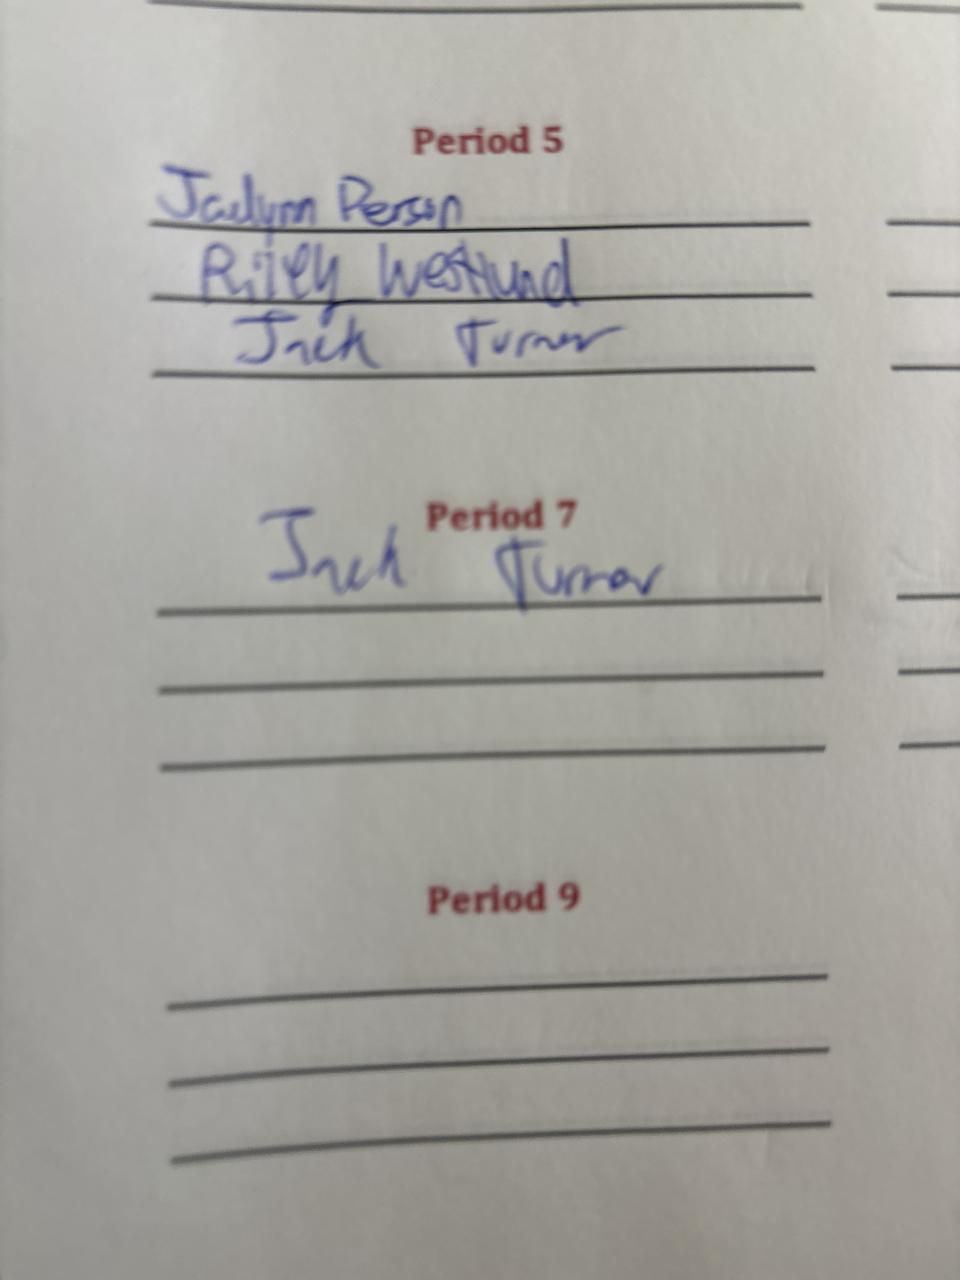 Period 5
Jaelynn Person
Riley Westlund
Jack Turner
Period 7
Jack Turner
Period 9